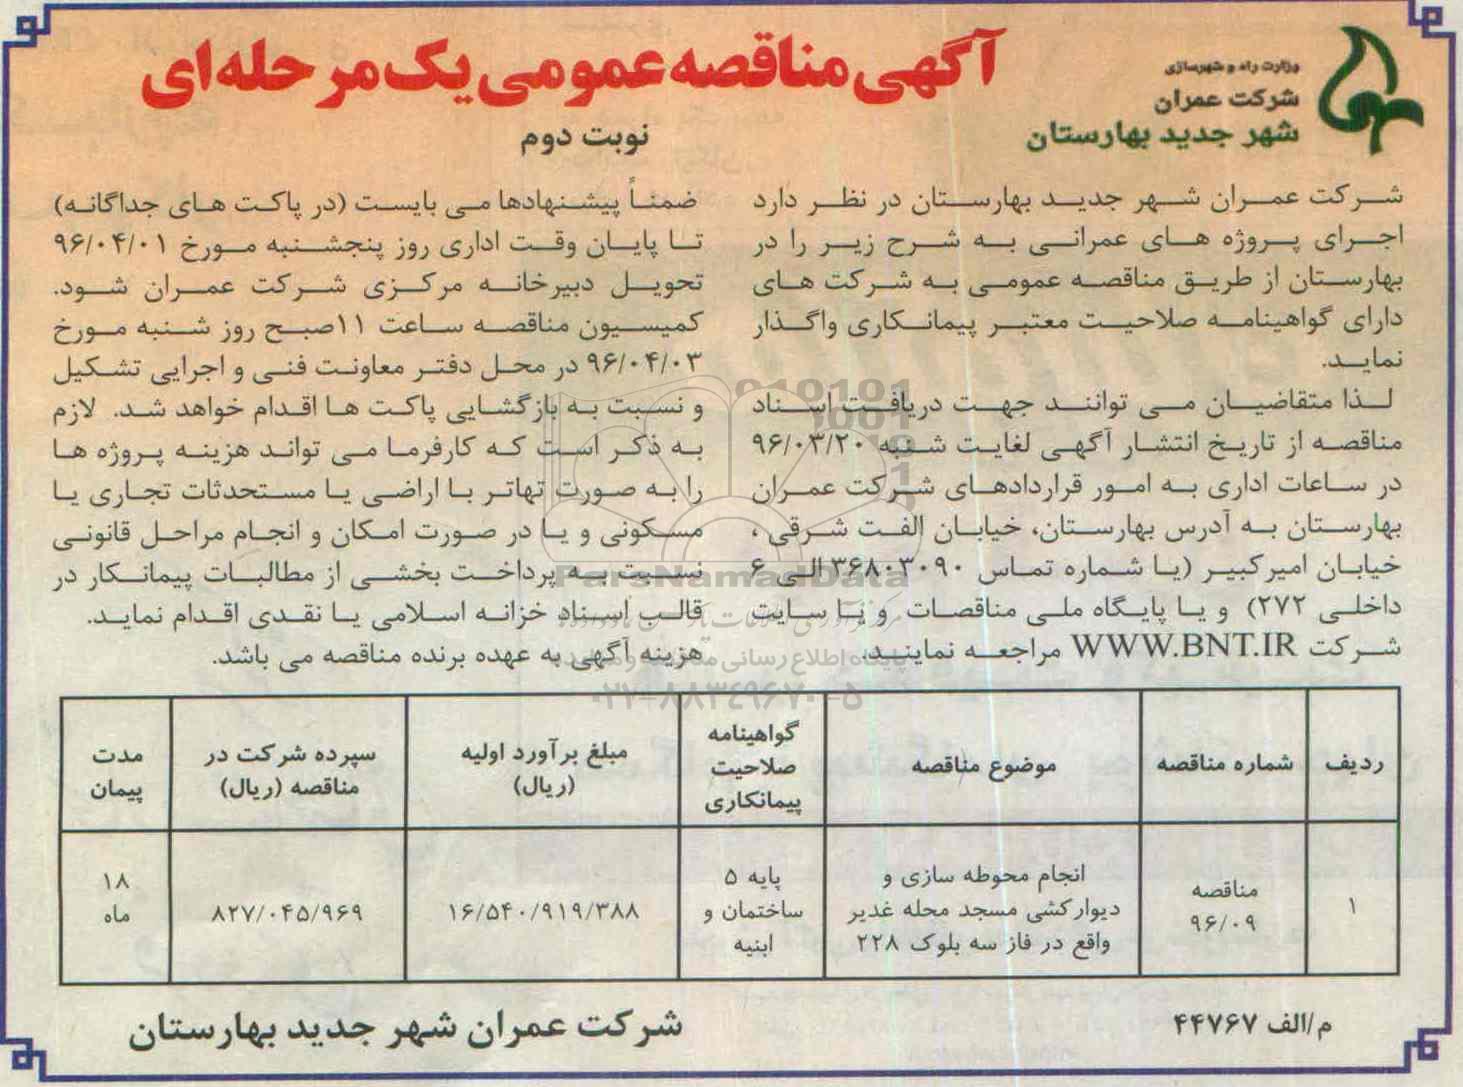 وزارت راه و شهرسازی
شرکت عمران
شهر جدید بهارستان
آگهی مناقصه عمومی یک مرحله ای
نوبت دوم
شرکت عمران شهر جدید بهارستان در نظر دارد
اجرای پروژه های عمرانی به شرح زیر را در
بهارستان از طریق مناقصه عمومی به شرکت های
دارای گواهینامه صلاحیت معتبر پیمانکاری واگذار
نماید.
لذا متقاضیان می توانند جهت دریافت اسناد
مناقصه از تاریخ انتشار آگهی لغایت شنبه ۹۶/۰۳/۲۰
در ساعات اداری به امور قراردادهای شرکت عمران
بهارستان به آدرس بهارستان، خیابان الفت شرقی ،
خیابان امیرکبیر (با شماره تماس ۳۶۸۰۳۰۹۰ الی ۶
داخلی ۲۷۲) و یا پایگاه ملی مناقصات و یا سایت
شرکت WWW.BNT.IR مراجعه نمایند.
ضمناً پیشنهادها می بایست (در پاکت های جداگانه)
تا پایان وقت اداری روز پنجشنبه مورخ ۹۶/۰۴/۰۱
تحویل دبیرخانه مرکزی شرکت عمران شود.
کمیسیون مناقصه ساعت ۱۱صبح روز شنبه مورخ
۹۶/۰۴/۰۳ در محل دفتر معاونت فنی و اجرایی تشکیل
و نسبت به بازگشایی پاکت ها اقدام خواهد شد. لازم
به ذکر است که کارفرما می تواند هزینه پروژه ها
را به صورت تهاتر با اراضی یا مستحدثات تجاری یا
مسکونی و یا در صورت امکان و انجام مراحل قانونی
نسبت به پرداخت بخشی از مطالبات پیمانکار در
قالب اسناد خزانه اسلامی یا نقدی اقدام نماید.
هزینه آگهی به عهده برنده مناقصه می باشد.
ParsNamadData
پایگاه اطلاع رسانی
۰۲۱-۸۸۳۴۹۶۷۰-۵
ردیف شماره مناقصه موضوع مناقصه گواهینامه صلاحیت پیمانکاری مبلغ برآورد اولیه (ریال) سپرده شرکت در مناقصه (ریال) مدت پیمان
۱ مناقصه ۹۶/۰۹ انجام محوطه سازی و دیوارکشی مسجد محله غدیر واقع در فاز سه بلوک ۲۲۸ پایه ۵ ساختمان و ابنیه ۱۶/۵۴۰/۹۱۹/۳۸۸ ۸۲۷/۰۴۵/۹۶۹ ۱۸ ماه
م/الف ۴۴۷۶۷
شرکت عمران شهر جدید بهارستان